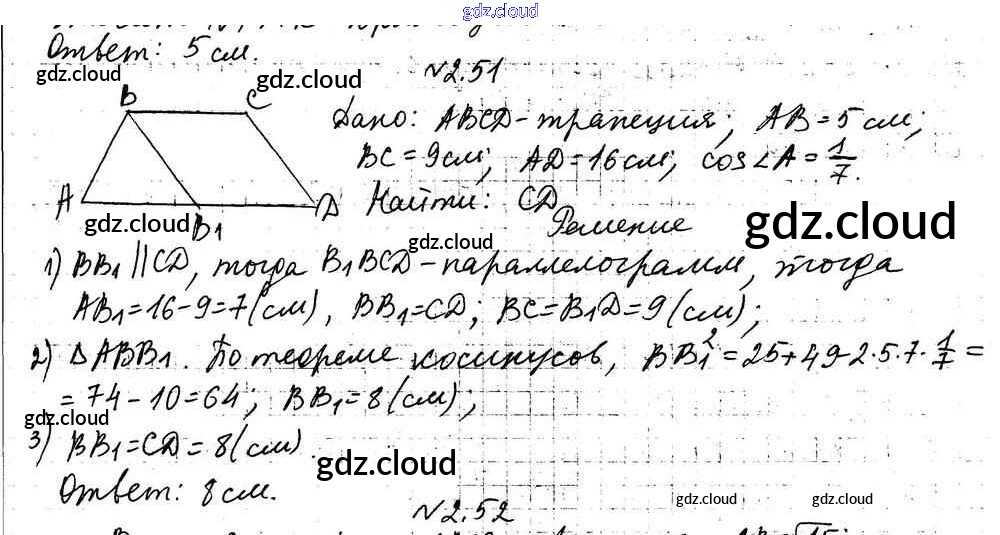 gdz.cloud
Ответ: 5 см.
gdz.cloud
gdz.cloud
№2.51
B C
Дано: ABCD-трапеция; AB=5 см;
BC=9см; AD=16см; cos∠A=1/7.
A B1 D
gdz.cloud
Найти: CD
Решение
gdz.cloud
gdz.cloud
1) BB1 || CD, тогда B1BCD-параллелограмм, тогда
AB1=16-9=7(см), BB1=CD; BC=B1D=9(см);
2) △ABB1. По теореме косинусов, BB1²=25+49-2·5·7·1/7=
=74-10=64; BB1=8(см);
gdz.cloud
3) BB1=CD=8(см).
gdz.cloud
Ответ: 8см.
№2.52
gdz.cloud
gdz.cloud